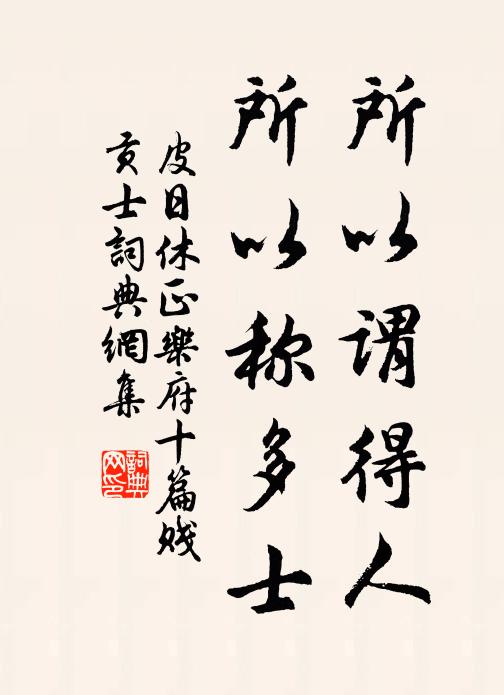 所以謂得人
所以称多士
皮日休正樂府十篇賤
貢士詞典網集
詞典网印